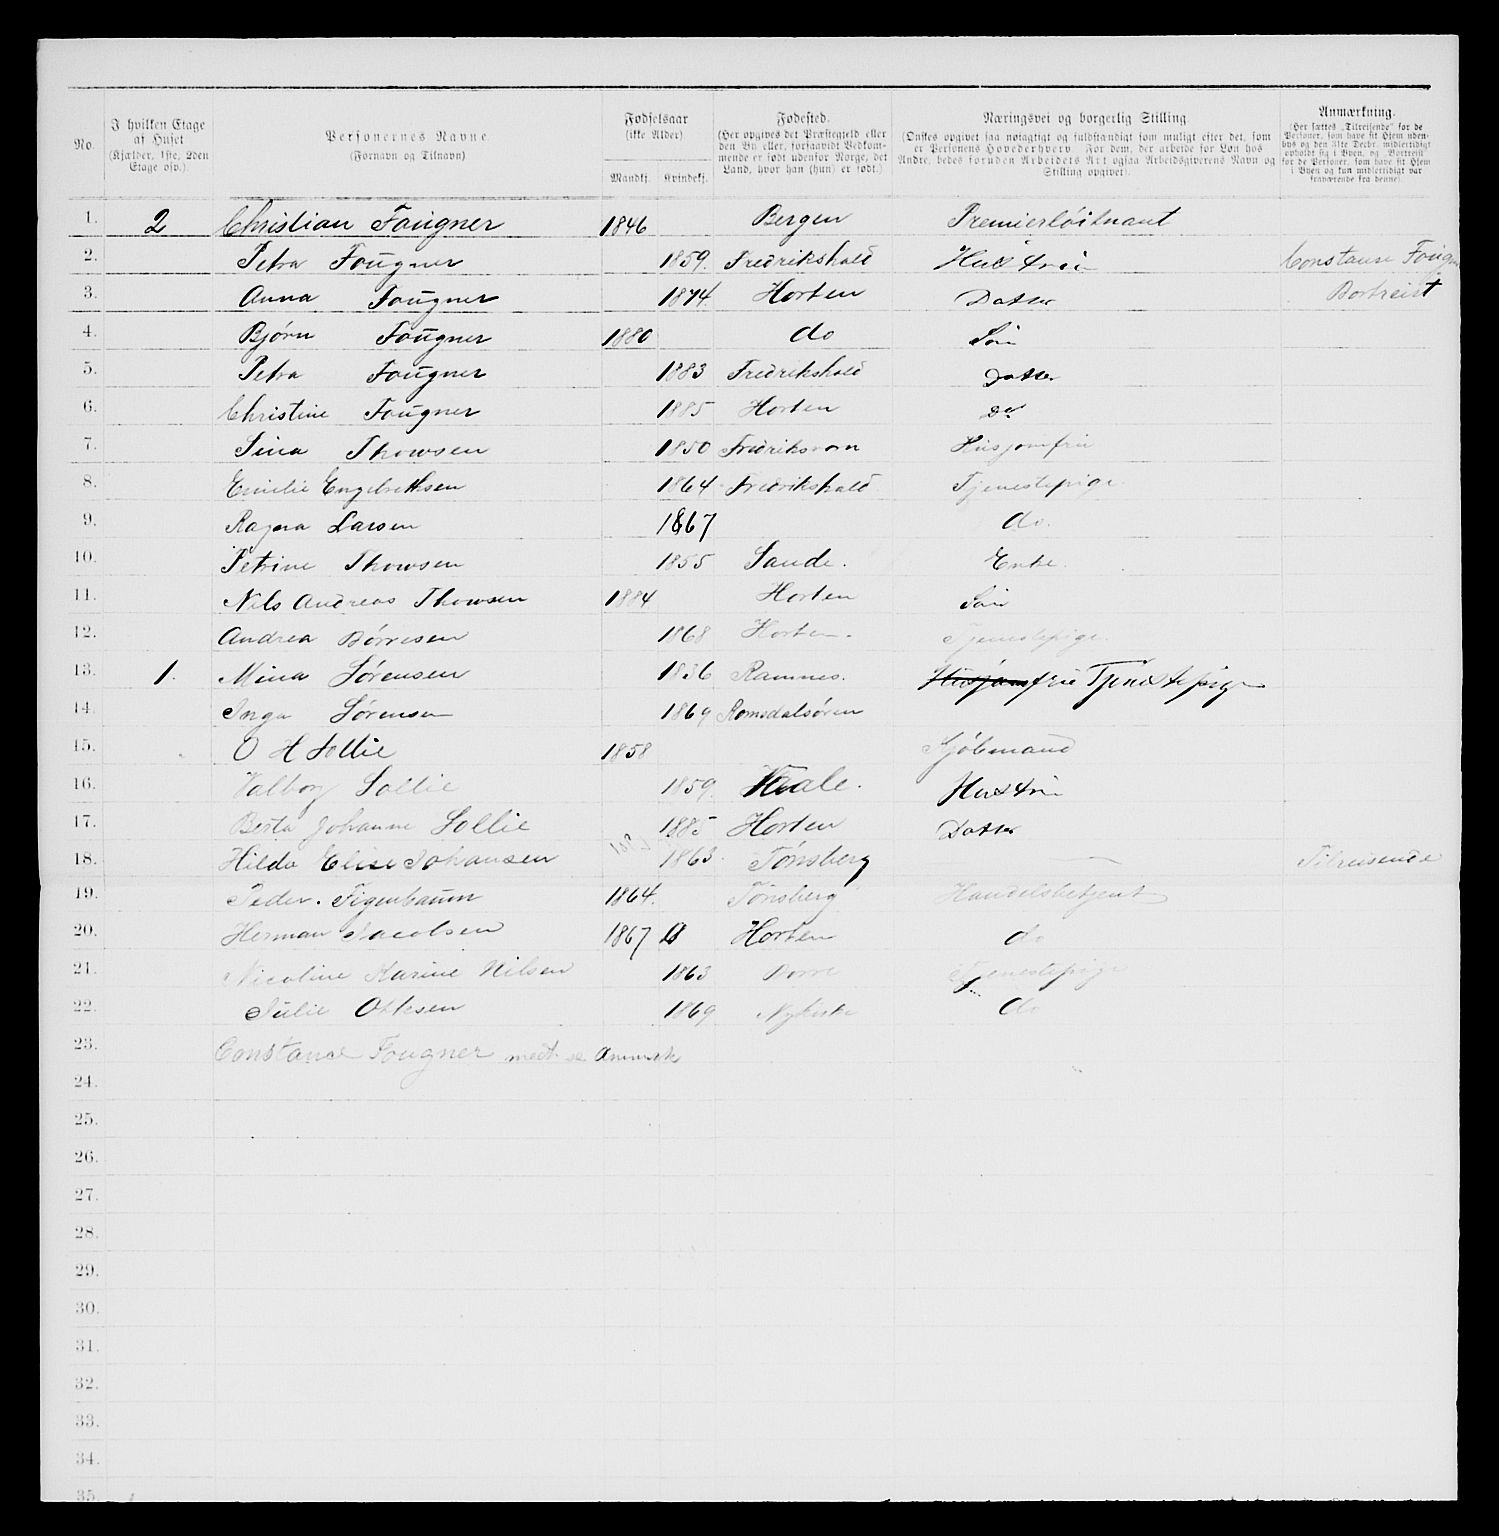 No.
I hvilken Etage af Huset (Kjælder, 1ste, 2den Etage osv.)
Personernes Navne (Fornavn og Tilnavn)
Fødselsaar (ikke Alder)
Mandkj. Kvindekj.
Fødested. (Her opgives det Præstegjeld eller den By eller, forsaavidt Vedkommende er født udenfor Norge, det Land, hvor han (hun) er født.)
Næringsvei og borgerlig Stilling (Ønskes opgivet saa nøiagtigt og fuldstændigt som muligt efter det, som er Personens Hovederhverv. For dem, der arbeide for Løn hos Andre, bedes foruden Arbeidets Art ogsaa Arbeidsgiverens Navn og Stilling opgivet).
Anmærkning. (Her sættes „Tilreisende“ for de Personer, som have sit Hjem udenbys og den 31te Decbr. midlertidigt opholdt sig i Byen, og „Bortreist“ for de Personer, som have sit Hjem i Byen og kun midlertidigt var fraværende fra denne)
1. 2 Christian Fougner 1846 Bergen Premierløitnant
2. Petra Fougner 1859. Fredrikshald Hustru Constanse Fougn
3. Anna Fougner 1874. Horten Datter Bortreist
4. Bjørn Fougner 1880 do Søn
5. Petra Fougner 1883 Fredrikshald Datter
6. Christine Fougner 1885 Horten Do
7. Sina Thowsen 1850 Fredriksværn Husjomfru
8. Emilie Engebrethsen 1864 Fredrikshald Tjenestepige
9. Ragna Larsen 1867 do.
10. Petrine Thowsen 1855 Sande. Enke.
11. Nils Andreas Thowsen 1884 Horten Søn
12. Andrea Børresen 1868 Horten. Tjenestepige.
13. 1. Mina Sørensen 1836 Ramnes. Husjomfru Tjenestepige
14. Inga Sørensen 1869 Romsdalsøren
15. O H Sollie 1858 Kjøbmand
16. Valborg Sollie 1859. Vaale. Hustru
17. Berta Johanne Sollie 1885 Horten Datter
18. Hilda Elise Johansen 1863. Tønsberg — Tilreisende
19. Peder. Figenbaum 1864. Tønsberg Handelsbetjent
20. Herman Jacobsen 1867 Horten do
21. Nicoline Karine Nilsen 1863 Borre Tjenestepige
22. Julie Ottesen 1869 Nykirke do
23. Constance Fougner medt. se Anmærk
24.
25.
26.
27.
28.
29.
30.
31.
32.
33.
34.
35.